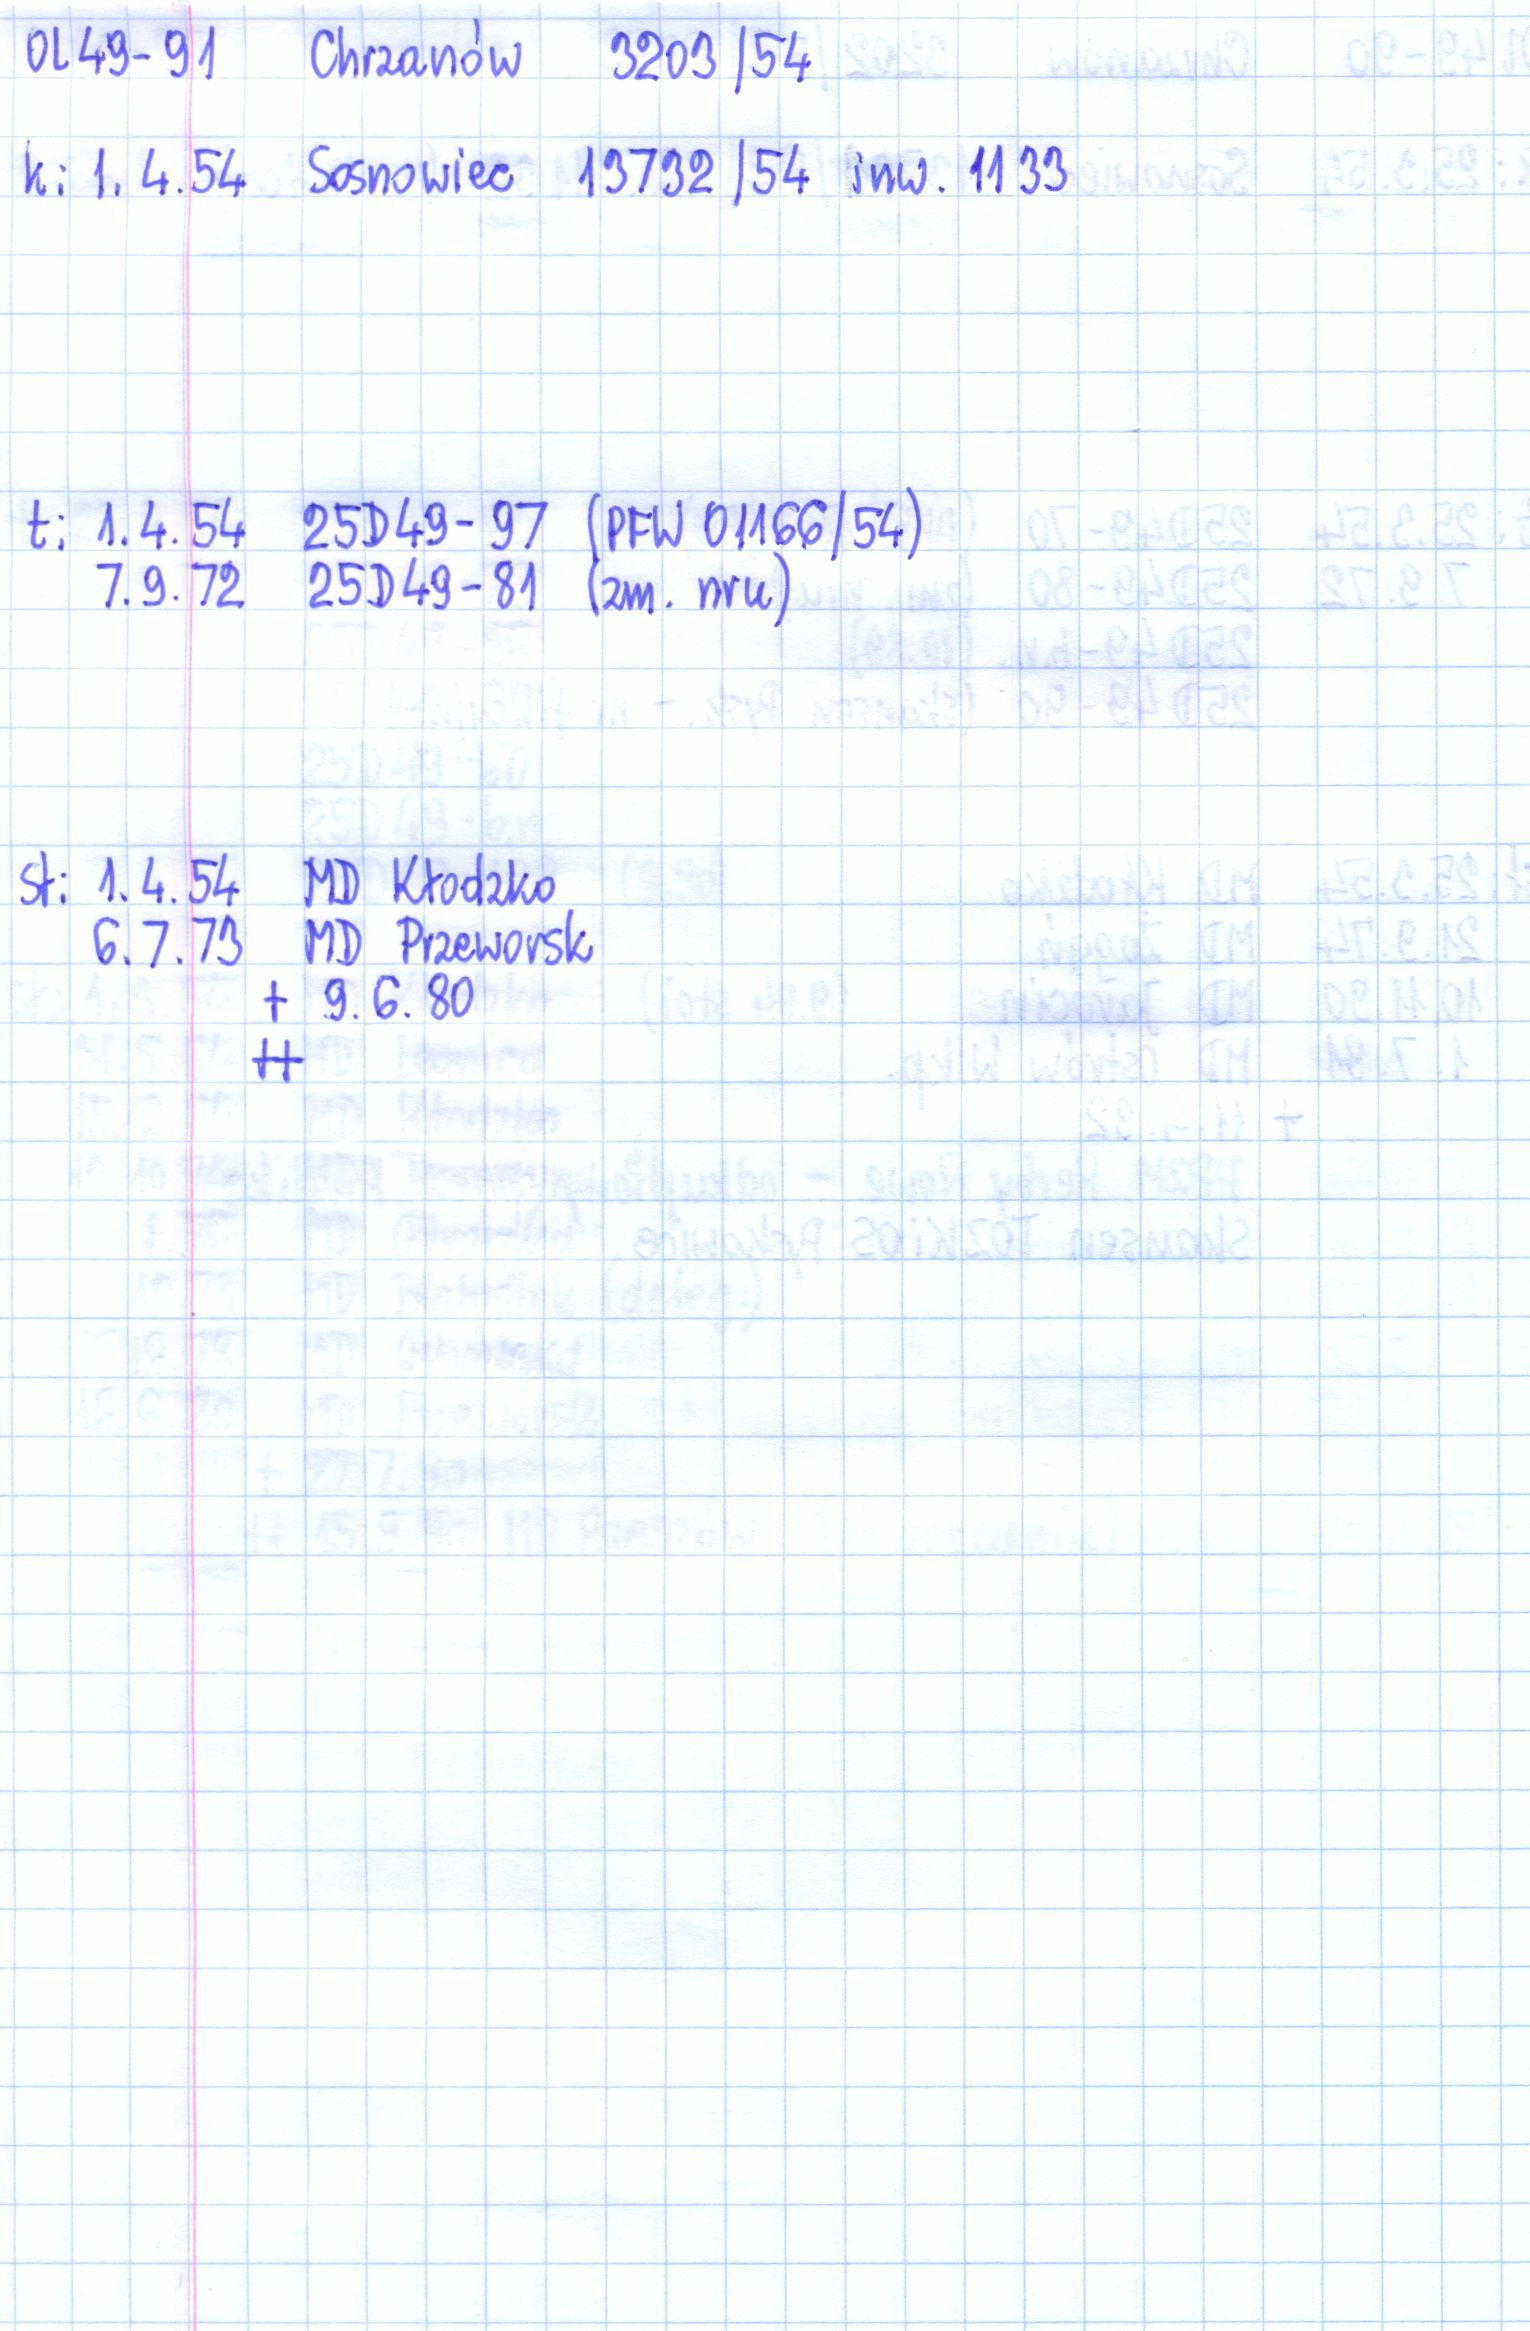 Ol 49-91 Chrzanów 3203/54
k: 1.4.54 Sosnowiec 13732/54 inw. 1133
t: 1.4.54 25D49-97 (PFW 01166/54)
7.9.72 25D49-81 (zm. nru)
st: 1.4.54 MD Kłodzko
6.7.73 MD Przeworsk
+ 9.6.80
++